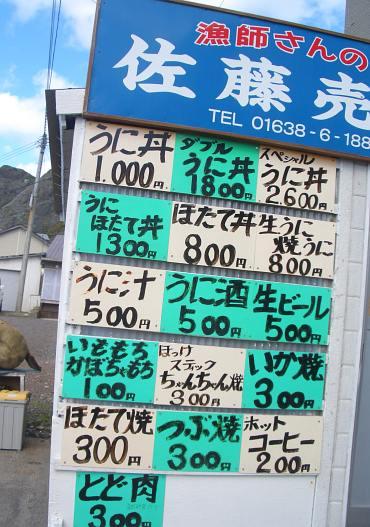 漁師さんの
佐藤売
TEL 01638-6-188
うに丼
1.000円
ダブル
うに丼
1800円
スペシャル
うに丼
2.600円
うに
ほたて丼
1300円
ほたて丼
800円
生うに
焼うに
800円
うに汁
500円
うに酒
500円
生ビール
500円
いももち
かぼちゃもち
100円
ほっけ
スティック
ちゃんちゃん焼
300円
いか焼
300円
ほたて焼
300円
つぶ焼
300円
ホット
コーヒー
200円
とど肉
300円